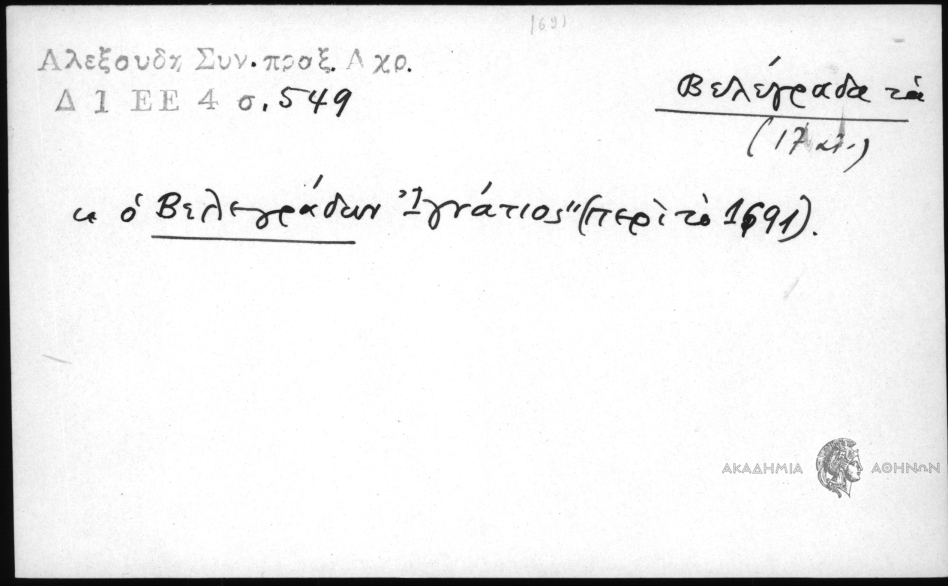 1691
Αλεξουδη Συν. προξ. Αχρ.
Δ 1 ΕΕ 4 σ. 549
Βελέγραδα τὰ
(17 αἰ.)
ὁ Βελεγράδων Ἰγνάτιος" (περὶ τὸ 1691).
ΑΚΑΔΗΜΙΑ ΑΘΗΝΩΝ